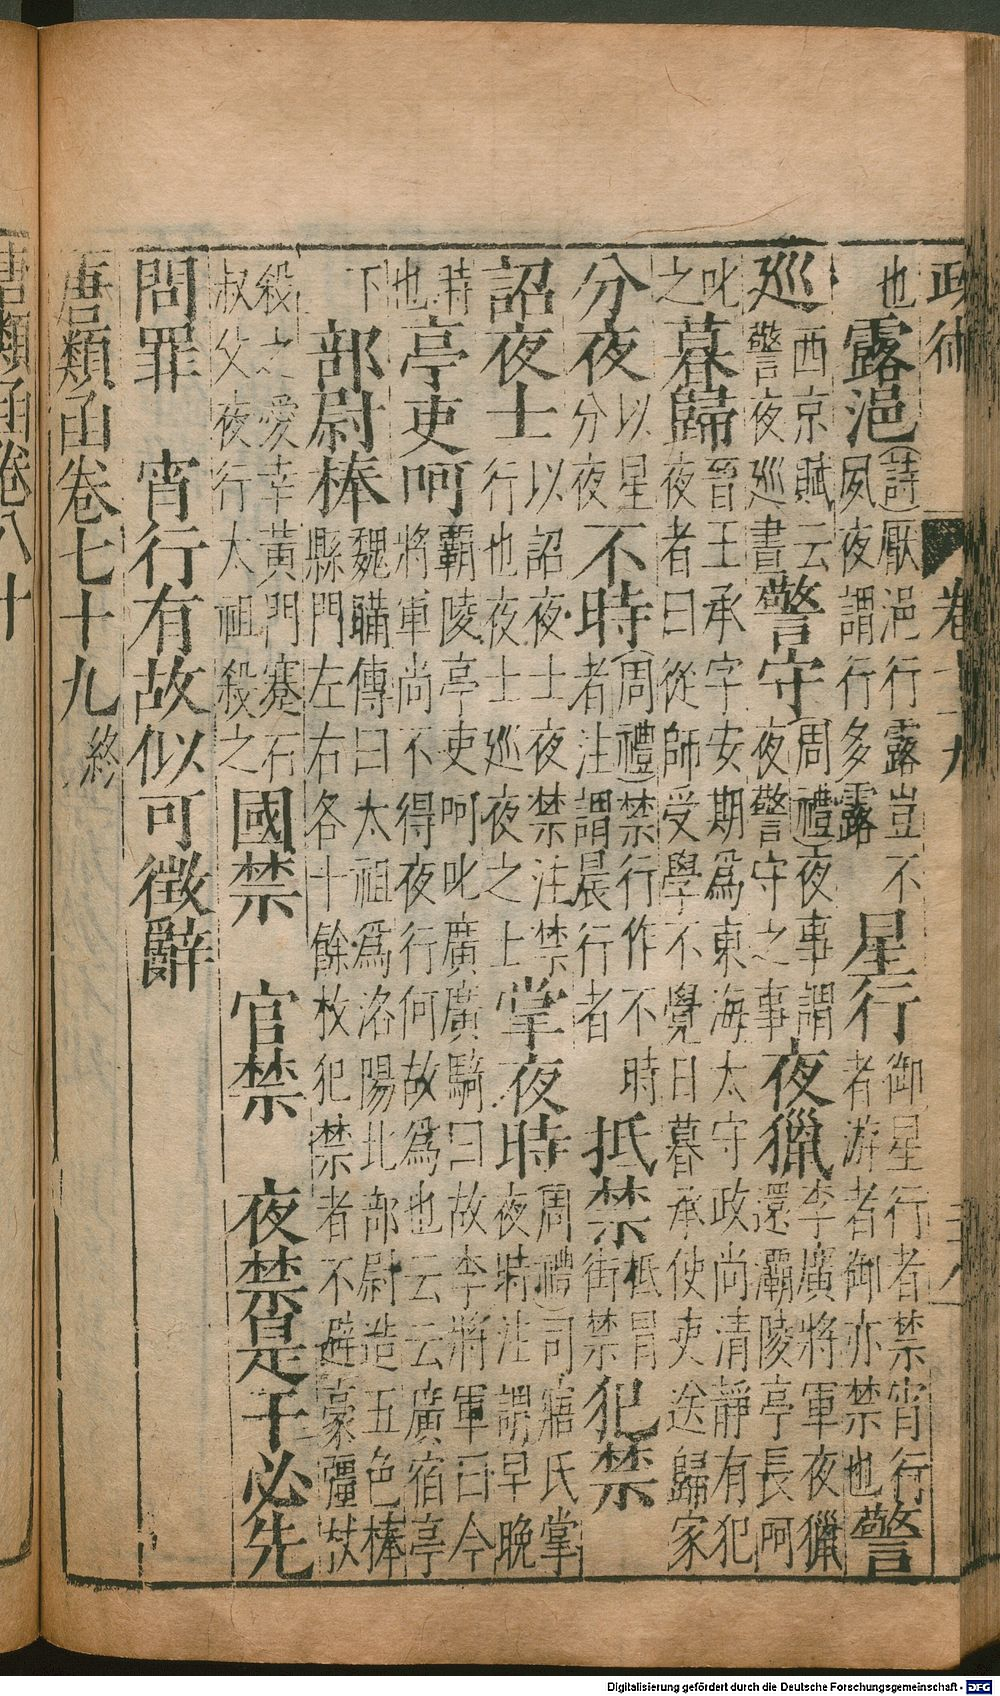 政術 卷七十九
也 露浥 詩厭浥行露豈不夙夜謂行多露 星行 御星行者禁宵行者游者御亦禁也 警
巡 西京賦云警夜巡晝 警守 周禮夜事謂夜警守之事 夜獵 李廣將軍夜獵還灞陵亭長呵
叱之 暮歸 晉王承字安期為東海太守政尚清靜有犯夜者曰從師受學不覺日暮承使吏送歸家
分夜 以星分夜 不時 周禮禁行作不時者注謂晨行者 抵禁 抵冒街禁 犯禁
詔夜士 以詔夜士夜禁注禁行也夜士巡夜之士 掌夜時 周禮司寤氏掌夜時注謂早晚
時也 亭吏呵 霸陵亭吏呵叱廣廣騎曰故李將軍曰今將軍尚不得夜行何故為也云云廣宿亭
下 部尉棒 魏瞞傳曰太祖為洛陽北部尉造五色棒縣門左右各十餘枚犯禁者不避豪彊杖
殺之愛幸黃門蹇石叔父夜行太祖殺之 國禁 官禁 夜禁是干必先
問罪 宵行有故似可徵辭
唐類函卷七十九終
唐類函卷八十
Digitalisierung gefördert durch die Deutsche Forschungsgemeinschaft - DFG